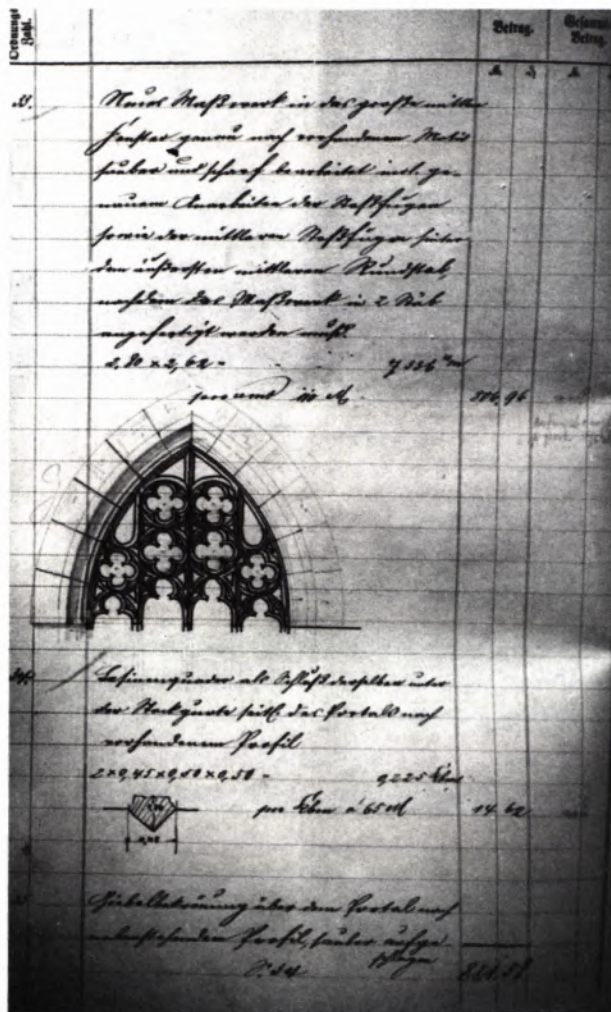 Ordnungs Zahl.
Betrag.
Gesammt Betrag.
M ₰ M
33.
Neues Maßwerk in das große mittlere
Fenster genau nach vorhandenem Motiv
sauber und scharf bearbeitet incl. ge-
nauem Anarbeiten der Stoßfugen
sowie der mittleren Stoßfuge hinter
dem äußersten mittleren Rundstab,
nachdem das Maßwerk in 2 Stück
angefertigt werden muß.
2,80 x 2,62 = 7336
pro
34.
Lesinenquader als Schluß derselben unter
der seitl. des Portals nach
vorhandenem Profil
2x0,45x0,50x0,50 = 0,225 Kbm
pro Kbm à 65 M 14 62
0,45
35
Giebelbekrönung über dem Portal nach
nebenstehendem Profil, sauber aufge-
schlagen